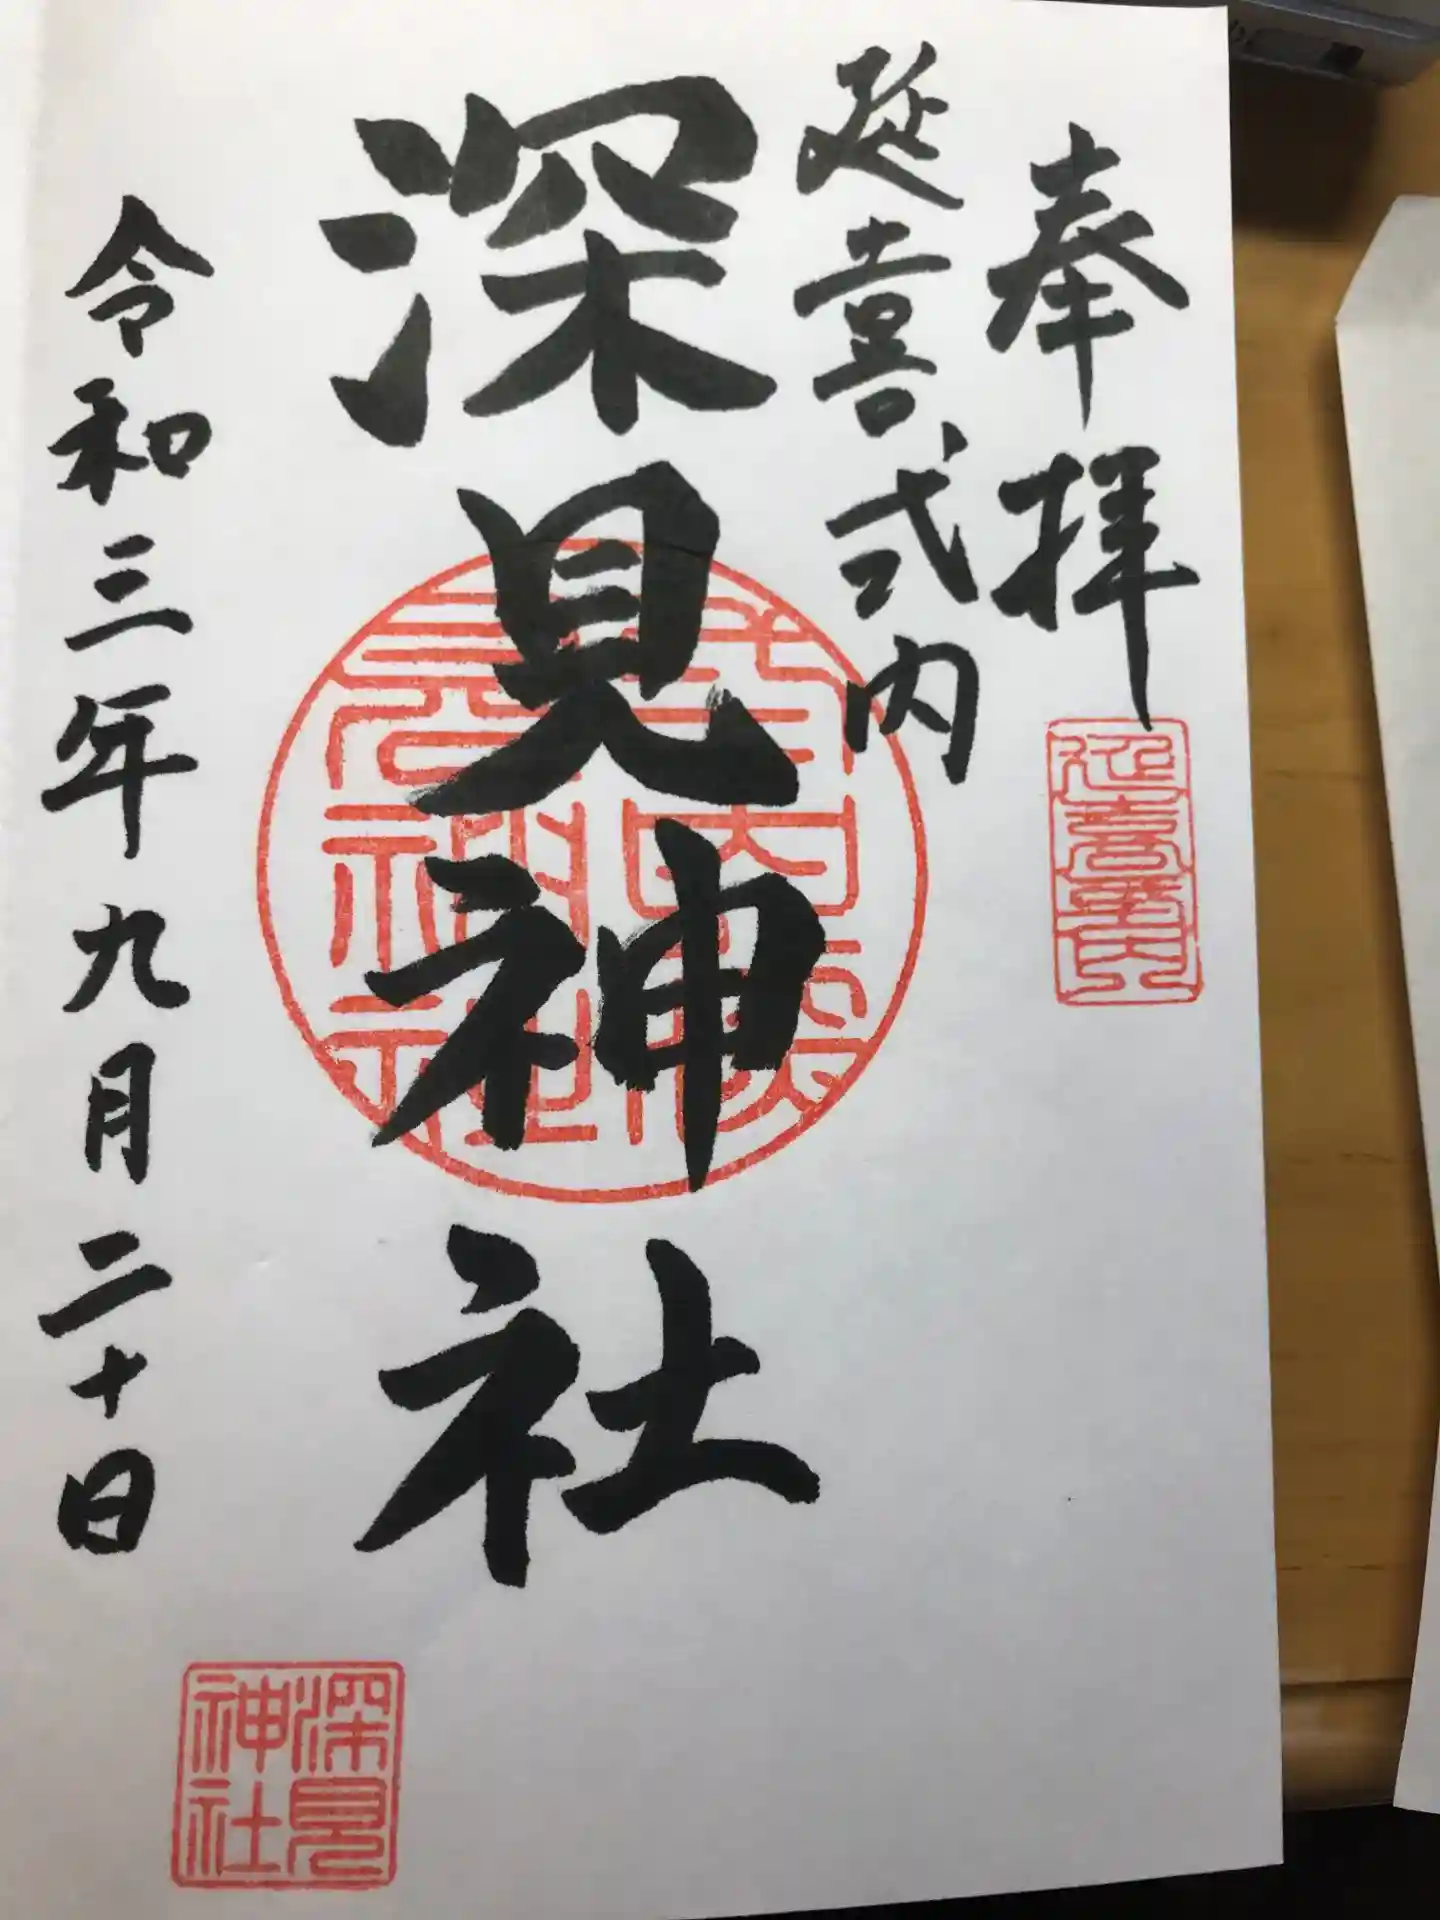 奉拝
延喜式内
深見神社
令和三年九月二十日
延喜式内
深見
神社